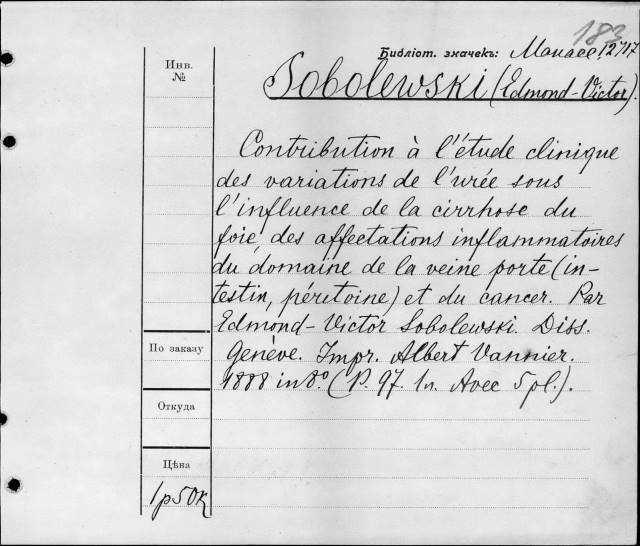 183
Библіот. значекъ: 12717
Инв.
№
Sobolewski (Edmond-Victor).
Contribution à l'étude clinique
des variations de l'urée sous
l'influence de la cirrhose du
foie, des affectations inflammatoires
du domaine de la veine porte (in-
testin, péritoine) et du cancer. Par
Edmond-Victor Sobolewski. Diss.
По заказу
Genève. Impr. Albert Vannier.
1888 in 8.° (P. 97. 1n. Avec 5 pl.).
Откуда
Цѣна
1р50к